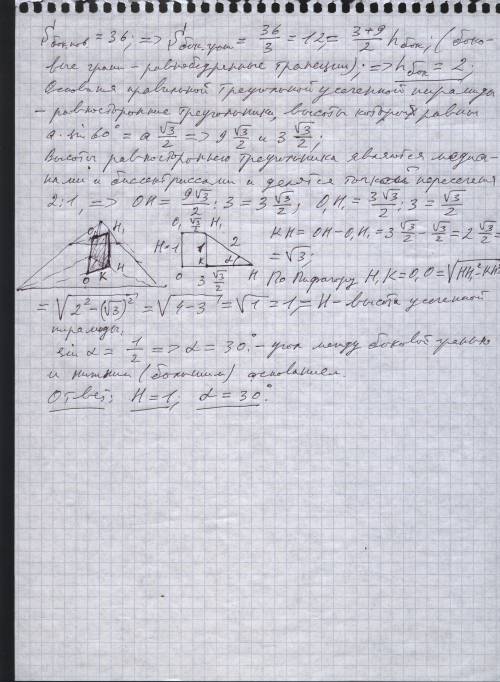 S бок.пов = 36; => S' бок.гран = 36/3 = 12, = (3+9)/2 h бок; (боко-
вые грани - равнобедренные трапеции); => h бок = 2;
Основания правильной треугольной усечённой пирамиды
- равносторонние треугольники, высоты которых равны
a·sin60° = a √3/2 => 9 √3/2 и 3 √3/2;
Высоты равностороннего треугольника являются медиа-
нами и биссектриссами и делятся точкой пересечения
2:1, => OH = 9√3/2 : 3 = 3 √3/2; O₁H₁ = 3√3/2 : 3 = √3/2
O₁ H₁
O K H
O₁ √3/2 H₁
H=1 1 2
K α
O 3 √3/2 H
KH = OH - O₁H₁ = 3 √3/2 - √3/2 = 2 √3/2
= √3;
По Пифагору H₁K = O₁O = √(HH₁² - KH²)
= √(2² - (√3)²) = √(4-3) = √1 = 1, = H - высота усечённой
пирамиды.
sin α = 1/2 => α = 30° - угол между боковой гранью
и нижним (большим) основанием.
Ответ: H = 1, α = 30°